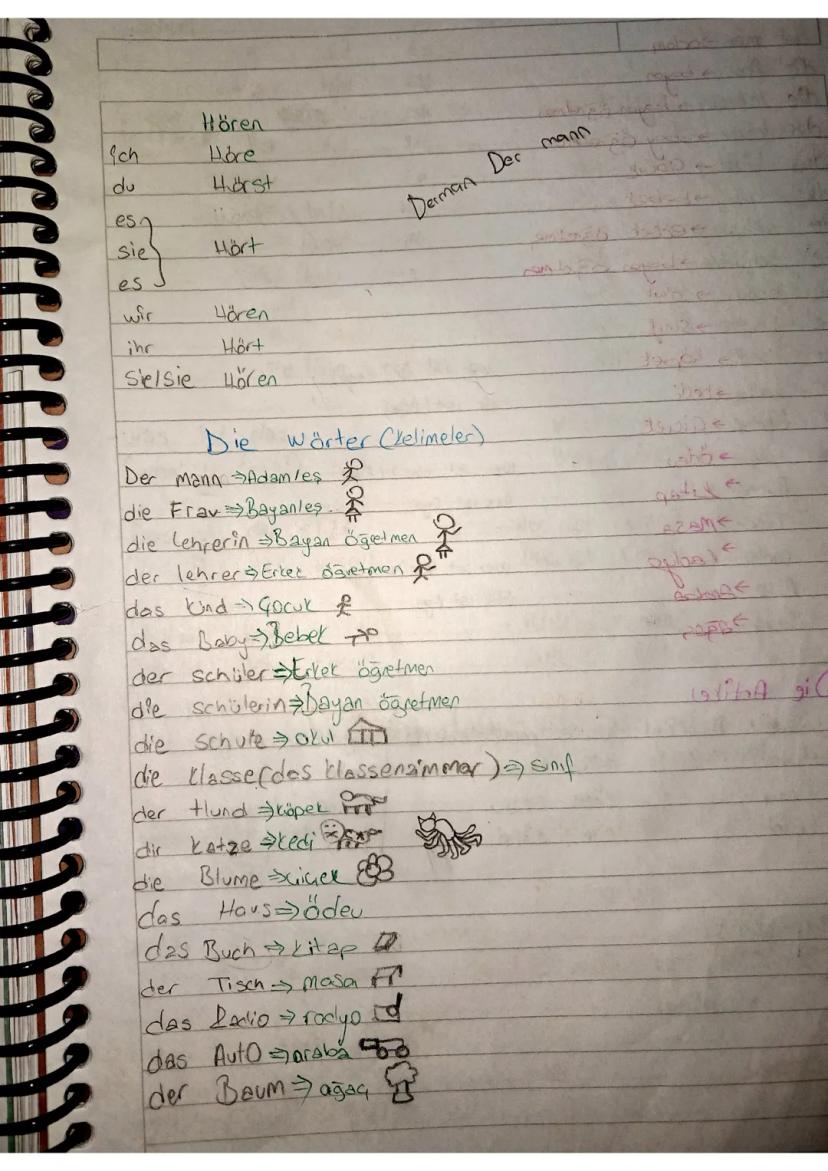 Hören
ich Höre
du Hörst
Derman Der mann
es
sie Hört
es
wir Hören
ihr Hört
Sie/sie Hören
Die Wörter (Kelimeler)
Der mann ⇒ Adam/eş
die Frau ⇒ Bayan/eş
die lehrerin ⇒ Bayan öğretmen
der lehrer ⇒ Erkek öğretmen
das kind → Çocuk
das Baby ⇒ Bebek
der schüler ⇒ Erkek öğretmen
die schülerin ⇒ Bayan öğretmen
die schule ⇒ okul
die klasse (das klassenzimmer) ⇒ sınıf
der Hund ⇒ köpek
die katze ⇒ kedi
die Blume ⇒ çiçek
das Haus ⇒ ödev
das Buch → kitap
der Tisch → masa
das Radio → radyo
das Auto ⇒ araba
der Baum ⇒ ağaç